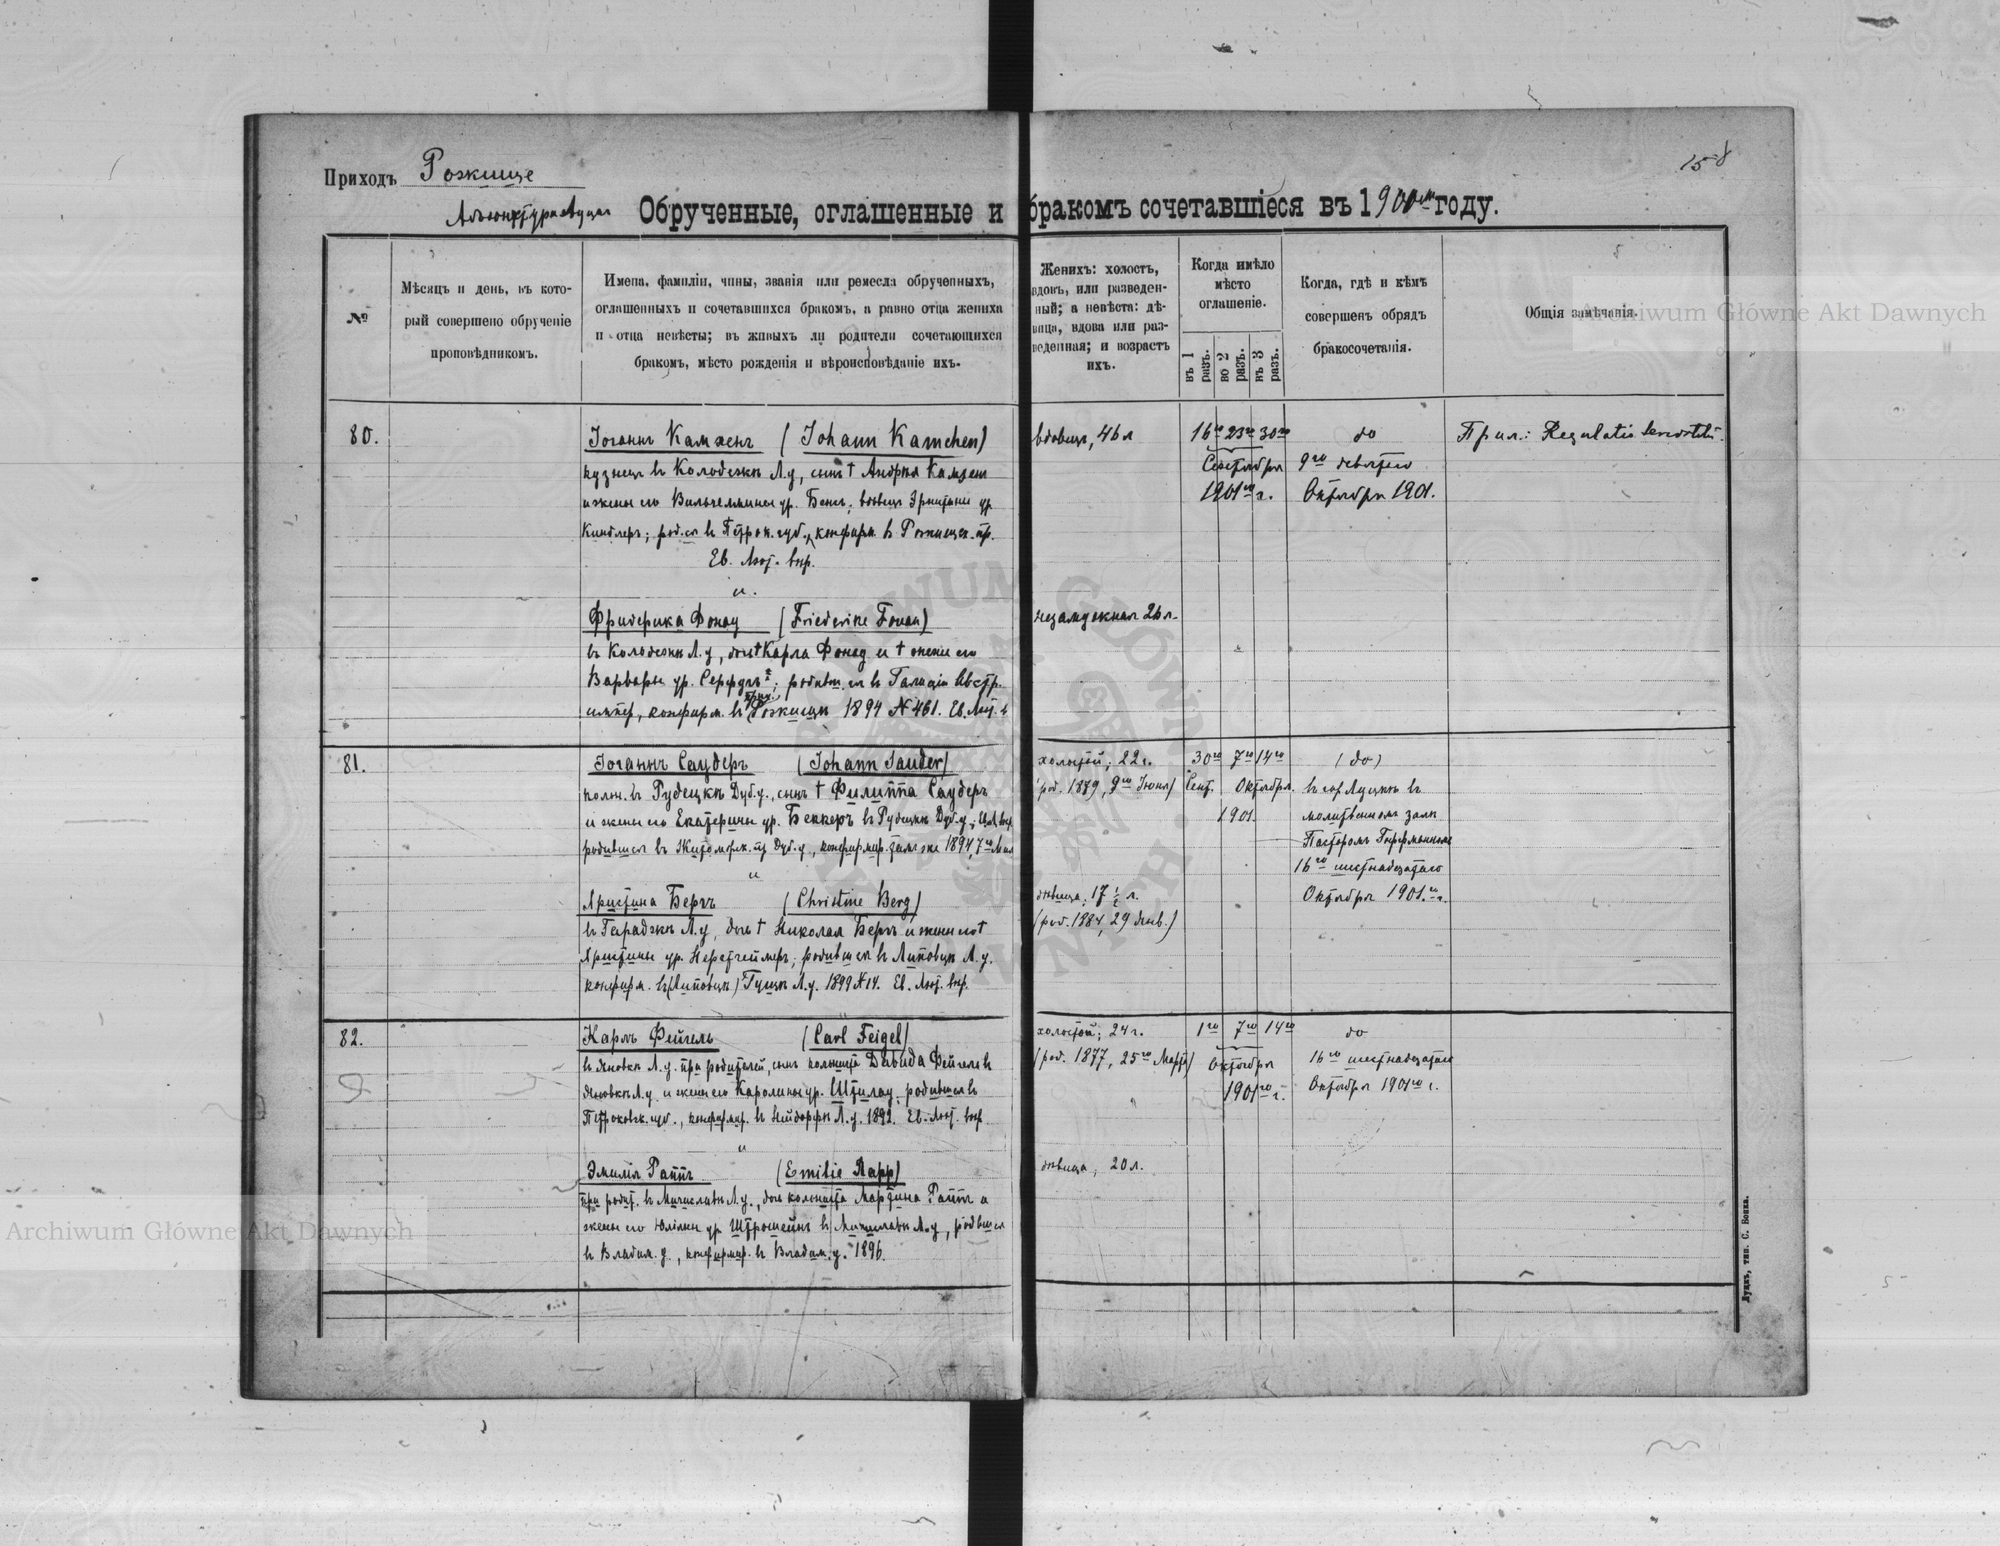 Приходъ Рожище
Адъюнктура Луцкъ
158
Обрученные, оглашенные и бракомъ сочетавшіеся въ 1900 году.
№
Мѣсяцъ и день, въ кото-
рый совершено обрученіе
проповѣдникомъ.
Имена, фамиліи, чины, званія или ремесла обрученныхъ,
оглашенныхъ и сочетавшихся бракомъ, а равно отца жениха
и отца невѣсты; въ живыхъ ли родители сочетающихся
бракомъ, мѣсто рожденія и вѣроисповѣданіе ихъ.
Женихъ: холостъ,
вдовъ, или разведен-
ный; а невѣста: дѣ-
вица, вдова или раз-
веденная; и возрастъ
ихъ.
Когда имѣло
мѣсто
оглашеніе.
въ 1 разъ.
во 2 разъ.
въ 3 разъ.
Когда, гдѣ и кѣмъ
совершенъ обрядъ
бракосочетанія.
Общія замѣчанія.
80.
Іоганнъ Камхенъ (Johann Kamchen)
кузнецъ въ Колодежѣ Л.у., сынъ † Андрея Камхенъ
и жены его Вильгельмины ур. Бенс; вдовецъ Эрнстины ур.
Киндлеръ; род.ся въ Петрок. губ., конфирм. въ Рожищен. пр.
Ев. Лют. вѣр.
и
Фридерика Фонау (Friederike Fonau)
въ Колодежѣ Л.у., дочь † Карла Фонау и † жены его
Варвары ур. ; родивш.ся въ Галиціи Австр.
импер., конфирм. въ Рожищѣ 1894 № 461. Ев. Лют. в
вдовецъ, 46 л
незамужняя 26 л.
16го 23го 30го
Сентября
1901го г.
do
9го девятаго
Октября 1901.
Прил.:
81.
Іоганнъ Саудеръ (Johann Sauder)
колон. въ Рудецкѣ Дуб.у., сынъ † Филиппа Саудеръ
и жены его Екатерины ур. Беккеръ въ Рудецкѣ Дуб.у.;
родившся въ Житомірск. Дуб.у., конфирмир. тамъ же 1894, 7го Мая
и
Христина Бергъ (Christine Berg)
въ Гараджѣ Л.у., дочь † Николая Бергъ и жены его †
Христины ур. ; родившся въ Липовцѣ Л.у.
конфирм. въ (Липовцѣ) Л.у. 1899 № 14. Ев. Лют. вѣр.
холостой; 22 г.
(род. 1879, 9го Іюня)
дѣвица; 17 ½ л.
(род. 1884, 29 Янв.)
30го 7го 14го
Сент. Октября
1901.
(do)
въ гор Луцкѣ въ
молитвенномъ залѣ
Пасторомъ
16го шестнадцатаго
Октября 1901 г.
82.
Карлъ Фейгель (Carl Feigel)
въ Яновкѣ Л.у. при родителей, сынъ колониста Давида Фейгель въ
Яновкѣ Л.у. и жены его Каролины ур. Штилау; родившся въ
Петроковск. губ., конфирмир. въ Нейдорфѣ Л.у. 1892. Ев. Лют. вѣр.
и
Эмилія Раппъ (Emilie Rapp)
при родит. въ Мичиславѣ Л.у., дочь колониста Мартина Раппъ и
жены его Юліаны ур. Штрошейнъ въ Мичиславѣ Л.у., родвшся
въ Владим.у., конфирмир. въ Владим.у. 1896.
холостой; 24 г.
(род. 1877, 25го Марта)
дѣвица, 20 л.
1го 7го 14го
Октября
1901го г.
do
16го шестнадцатаго
Октября 1901го г.
Луцкъ, тип. С. Бонка.
Archiwum Główne Akt Dawnych
Archiwum Główne Akt Dawnych